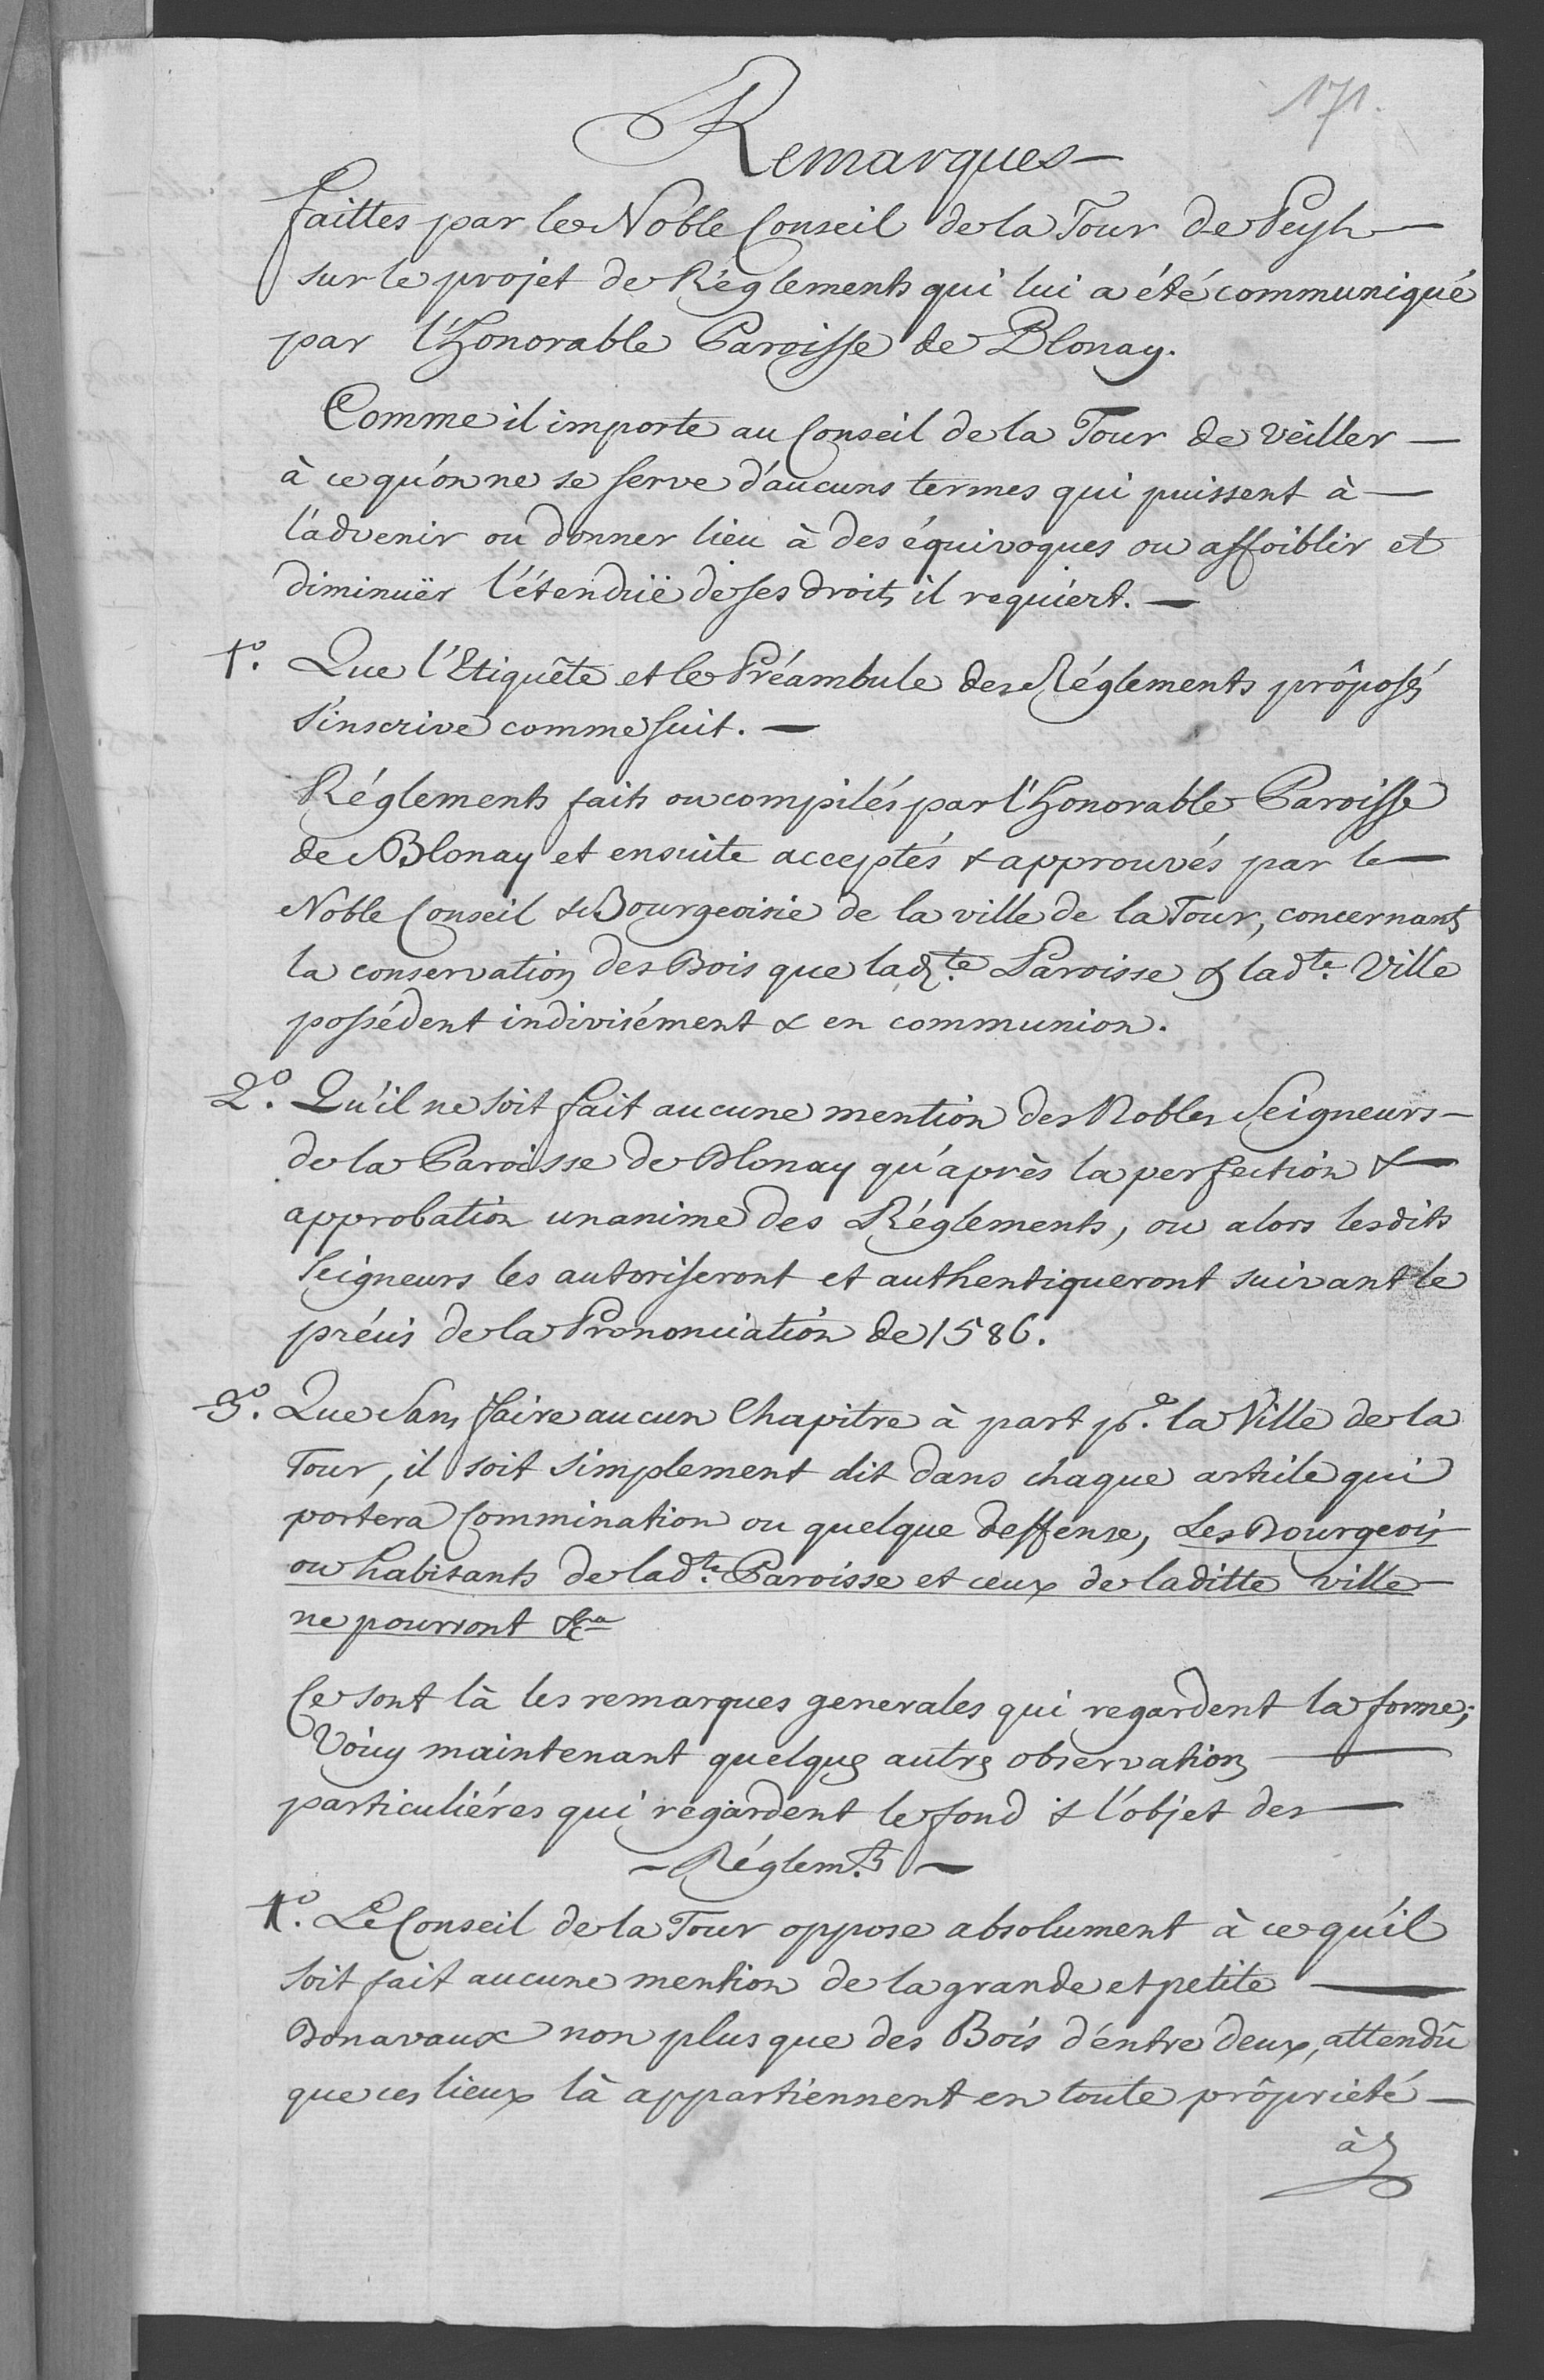 171.
Remarques
faittes par le Noble Conseil de la Tour de Peylz
sur le projet de Réglements qui lui a été communiqué
par l'Honorable Paroisse de Blonay.
Comme il importe au Conseil de la Tour de vèiller
à ce qu'on ne se serve d'aucuns termes qui puissent à
l'advenir ou donner lieu à des équivoques ou affoiblir et
diminuër l'étenduë de ses droits il requiert.
1.º Que l'Etiquête et le Préambule des Réglements prôposés
s'inscrive comme suit.
Réglements faits ou compilés par l'Honorable Paroisse
de Blonay et ensuite acceptés & approuvés par le
Noble Conseil & Bourgeoisie de la ville de la Tour, concernants
la conservation des Bois que lad.te Paroisse & lad.te Ville
possédent indivisément & en communion.
2.º Qu'il ne soit fait aucune mention des Nobles Seigneurs
de la Paroisse de Blonay qu'après la perfection &
approbation unanime des Réglements, ou alors lesdits
Seigneurs les autoriseront et authentiqueront suivant le
précis de la Prononciation de 1586.
3.º Que sans faire aucun Chapitre à part p.r la Ville de la
Tour, il soit simplement dit dans chaque article qui
portera Commination ou quelque deffense, Les Bourgeois
ou habitants de lad.te Paroisse et ceux de laditte ville
ne pourront &ca
Ce sont là les remarques generales qui regardent la forme;
Voicy maintenant quelques autres observations
particuliéres qui regardent le fond & l'objet des
Réglem.ts
1.º Le Conseil de la Tour oppose absolument à ce qu'il
soit fait aucune mention de la grande et petite
Bonavaux non plus que des Bois d'entre deux, attendû
que ces lieux là appartiennent en toute prôprieté
à